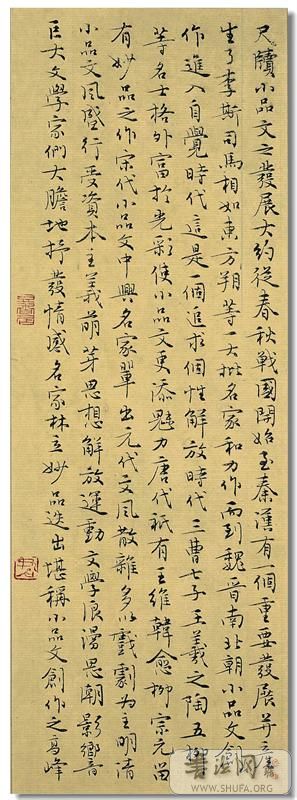 尺牘小品文之發展大約從春秋戰國開始至秦漢有一個重要發展并產
生了李斯司馬相如東方朔等一大批名家和力作而到魏晋南北朝小品文創
作進入自覺時代這是一個追求個性解放時代三曹七子王羲之陶五柳
等名士格外富於光彩使小品文更添魅力唐代祇有王維韓愈柳宗元留
有妙品之作宋代小品文中興名家輩出元代文風散雜多以戲劇為主明清
小品文風盛行受資本主義萌芽思想解放運動文學浪漫思潮影響音
巨大文學家們大膽地抒發情感名家林立妙品迭出堪稱小品文創作之高峰
書法网
WWW.SHUFA.ORG